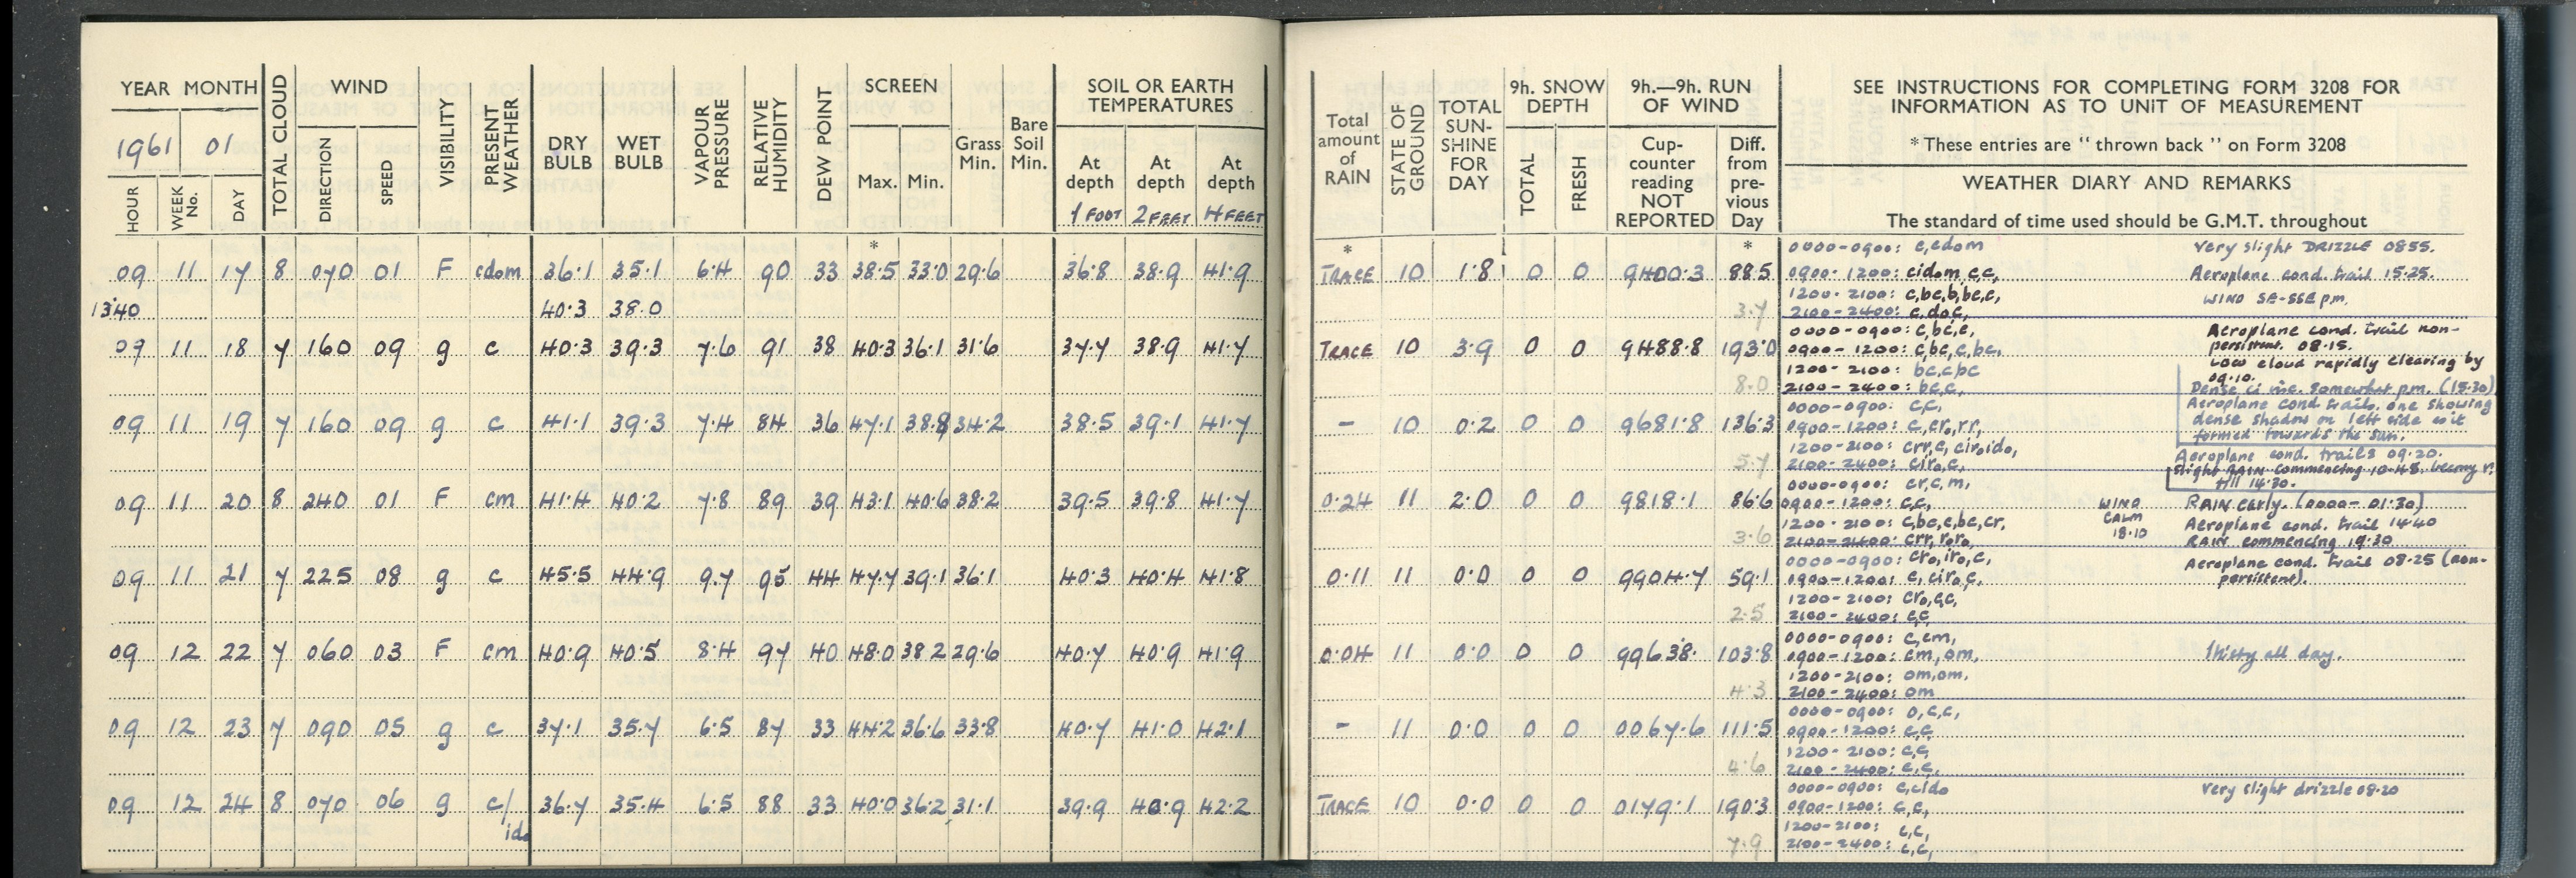 YEAR MONTH TOTAL CLOUD WIND VISIBILITY PRESENT WEATHER DRY BULB WET BULB VAPOUR PRESSURE RELATIVE HUMIDITY DEW POINT SCREEN Grass Min. Bare Soil Min. SOIL OR EARTH TEMPERATURES
1961 01 DIRECTION SPEED Max. Min. At depth At depth At depth
HOUR WEEK No. DAY 1 FOOT 2 FEET 4 FEET
*
09 11 17 8 070 01 F cdom 36.1 35.1 6.4 90 33 38.5 33.0 29.6 36.8 38.9 41.9
13.40 40.3 38.0
09 11 18 7 160 09 g c 40.3 39.3 7.6 91 38 40.3 36.1 31.6 37.7 38.9 41.7
09 11 19 7 160 09 g c 41.1 39.3 7.4 84 36 47.1 38.8 34.2 38.5 39.1 41.7
09 11 20 8 240 01 F cm 41.4 40.2 7.8 89 39 43.1 40.6 38.2 39.5 39.8 41.7
09 11 21 7 225 08 g c 45.5 44.9 9.7 95 44 47.7 39.1 36.1 40.3 40.4 41.8
09 12 22 7 060 03 F cm 40.9 40.5 8.4 97 40 48.0 38.2 29.6 40.7 40.9 41.9
09 12 23 7 090 05 g c 37.1 35.7 6.5 87 33 44.2 36.6 33.8 40.7 41.0 42.1
09 12 24 8 070 06 g c/ 36.7 35.4 6.5 88 33 40.0 36.2 31.1 39.9 40.9 42.2
ido
Total amount of RAIN STATE OF GROUND TOTAL SUN-SHINE FOR DAY 9h. SNOW DEPTH 9h.—9h. RUN OF WIND
TOTAL FRESH Cup-counter reading NOT REPORTED Diff. from pre-vious Day
SEE INSTRUCTIONS FOR COMPLETING FORM 3208 FOR
INFORMATION AS TO UNIT OF MEASUREMENT
* These entries are "thrown back" on Form 3208
WEATHER DIARY AND REMARKS
The standard of time used should be G.M.T. throughout
* *
0000-0900: c,cdom Very slight DRIZZLE 0855.
TRACE 10 1.8 0 0 9400.3 88.5 0900-1200: cidom, c,c, Aeroplane cond. trail 15.25.
1200-2100: c,bc,b,bc,c, WIND SE-SSE p.m.
3.7 2100-2400: c,doc,
0000-0900: c,bc,c, Aeroplane cond. trail non-
persistent. 08.15.
TRACE 10 3.9 0 0 9488.8 193.0 0900-1200: c,bc,c,bc,
Low cloud rapidly clearing by
09.10.
1200-2100: bc,cbc
8.0 2100-2400: bc,c, Dense ci inc. somewhat p.m. (15.30)
0000-0900: c,c, Aeroplane cond. trails. one showing
dense shadow on left side as it
formed towards the sun.
- 10 0.2 0 0 9681.8 136.3 0900-1200: c,cro,rr,
1200-2100: crr,c, ciro,ido, Aeroplane cond. trails 09.20.
5.7 2100-2400: ciro,c, Slight RAIN commencing 10.45.
till 14.30.
0000-0900: cr,c,m,
0.24 11 2.0 0 0 9818.1 86.6 0900-1200: c,c, WIND CALM 18.10 RAIN early. (0000-01.30)
1200-2100: c,bc,c,bc,cr, Aeroplane cond. trail 14.40
3.6 2100-2400: crr,roro, RAIN commencing 19.20
0000-0900: cro,iro,c, Aeroplane cond. trail 08.25 (non-
persistent).
0.11 11 0.0 0 0 9904.7 59.1 0900-1200: c, ciro,c,
1200-2100: cro,c,c,
2.5 2100-2400: c,c,
0000-0900: c,cm,
0.04 11 0.0 0 0 9963.8 103.8 0900-1200: cm,om, Misty all day.
1200-2100: om,om,
4.3 2100-2400: om
0000-0900: o,c,c,
- 11 0.0 0 0 0067.6 111.5 0900-1200: c,c,
1200-2100: c,c,
4.6 2100-2400: c,c,
0000-0900: c,cido Very slight drizzle 08.20
TRACE 10 0.0 0 0 0179.1 190.3 0900-1200: c,c,
1200-2100: c,c,
7.9 2100-2400: c,c,